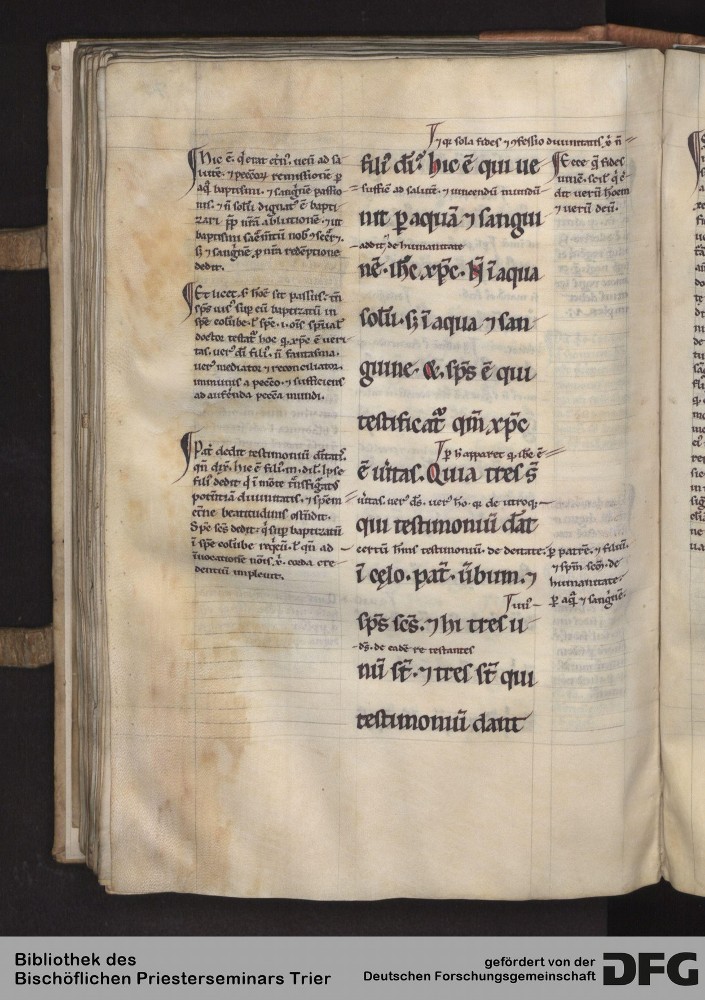 hic ē. q̇ erat et̄n'. uen̄ ad sa
lutē. ⁊ peccoꝝ remissionē ꝑ
aq̄ baptismi. ⁊ sanguinē passio
nis. ⁊ n̄ solū dignat' ē bapti
zari ꝓp nr̄ā ablutionē. ⁊ ut
baptismi sac̄m̄tū nob̄
s; ⁊ sanguinē ꝓ nr̄a redēptione
dedit.
Et licet s' hoc̄ sit passus. tn̄
sp̄s uis' sup eū baptizatū in
spē colūbe. l' spē. i. oīs sp̄ual'
doctor testat̄ hoc q. xp̄c ē ueri
tas. uer' dī fili'. n̄ fantasma.
uer' mediator ⁊ reconciliator.
immunis a pecc̄o. ⁊ sufficiens
ad auferenda pecc̄a mundi.
Pat̄ dedit testimoniū
qn̄ dix̄. hic ē fili' m̄. dil'. Ipse
fili' dedit q̇ ī mōte
potētiā diuinitatis. ⁊ spem
et̄ne beatitudinis ostēdit.
Spc̄ scs̄ dedit. q̇ sup baptizatū
ī spē colūbe l' qn̄ ad
inuocatione nōis. x̄. corda cre
dentiū impleuit.
⁊ qr sola fides ⁊ 9fessio diuinitatis. x̄. n̄
filī' dī.' hic ē qui ue
suffic̄ ad salutē. ⁊ uincendū mundū
nit ꝑ aquā ⁊ sangui
addit̄ de humanitate
nē. ih̄c xp̄c. N̄ ī aqua
solū. s; ī aqua ⁊ san
guine. Et. sp̄s ē qui
testificat̄ qm̄ xp̄c
ꝑ h̄ apparet q. ih̄c ē
ē ūitas. Quia tres s̄
ūitas. uer' ds̄. uer' ho. qr de utroq;
qui testimoniū dāt
certū huīs testimoniū. de deitate.
ī cęlo. pat̄. ūbum. ⁊
sp̄s scs̄. ⁊ hi tres u
ds̄. de eadē re testantes
nū st̄. ⁊ tres st̄ qui
testimoniū dant
Ecce q̇ fides
uinē. scil'. q̇ c̄
dit uerū hoīem
⁊ uerū deū.
ꝑ patrē. ⁊ filiū.
⁊ spm̄ scm̄. de
humanitate.
ꝑ aq̄. ⁊ sanguinē.
Bibliothek des
Bischöflichen Priesterseminars Trier
gefördert von der
Deutschen Forschungsgemeinschaft
DFG